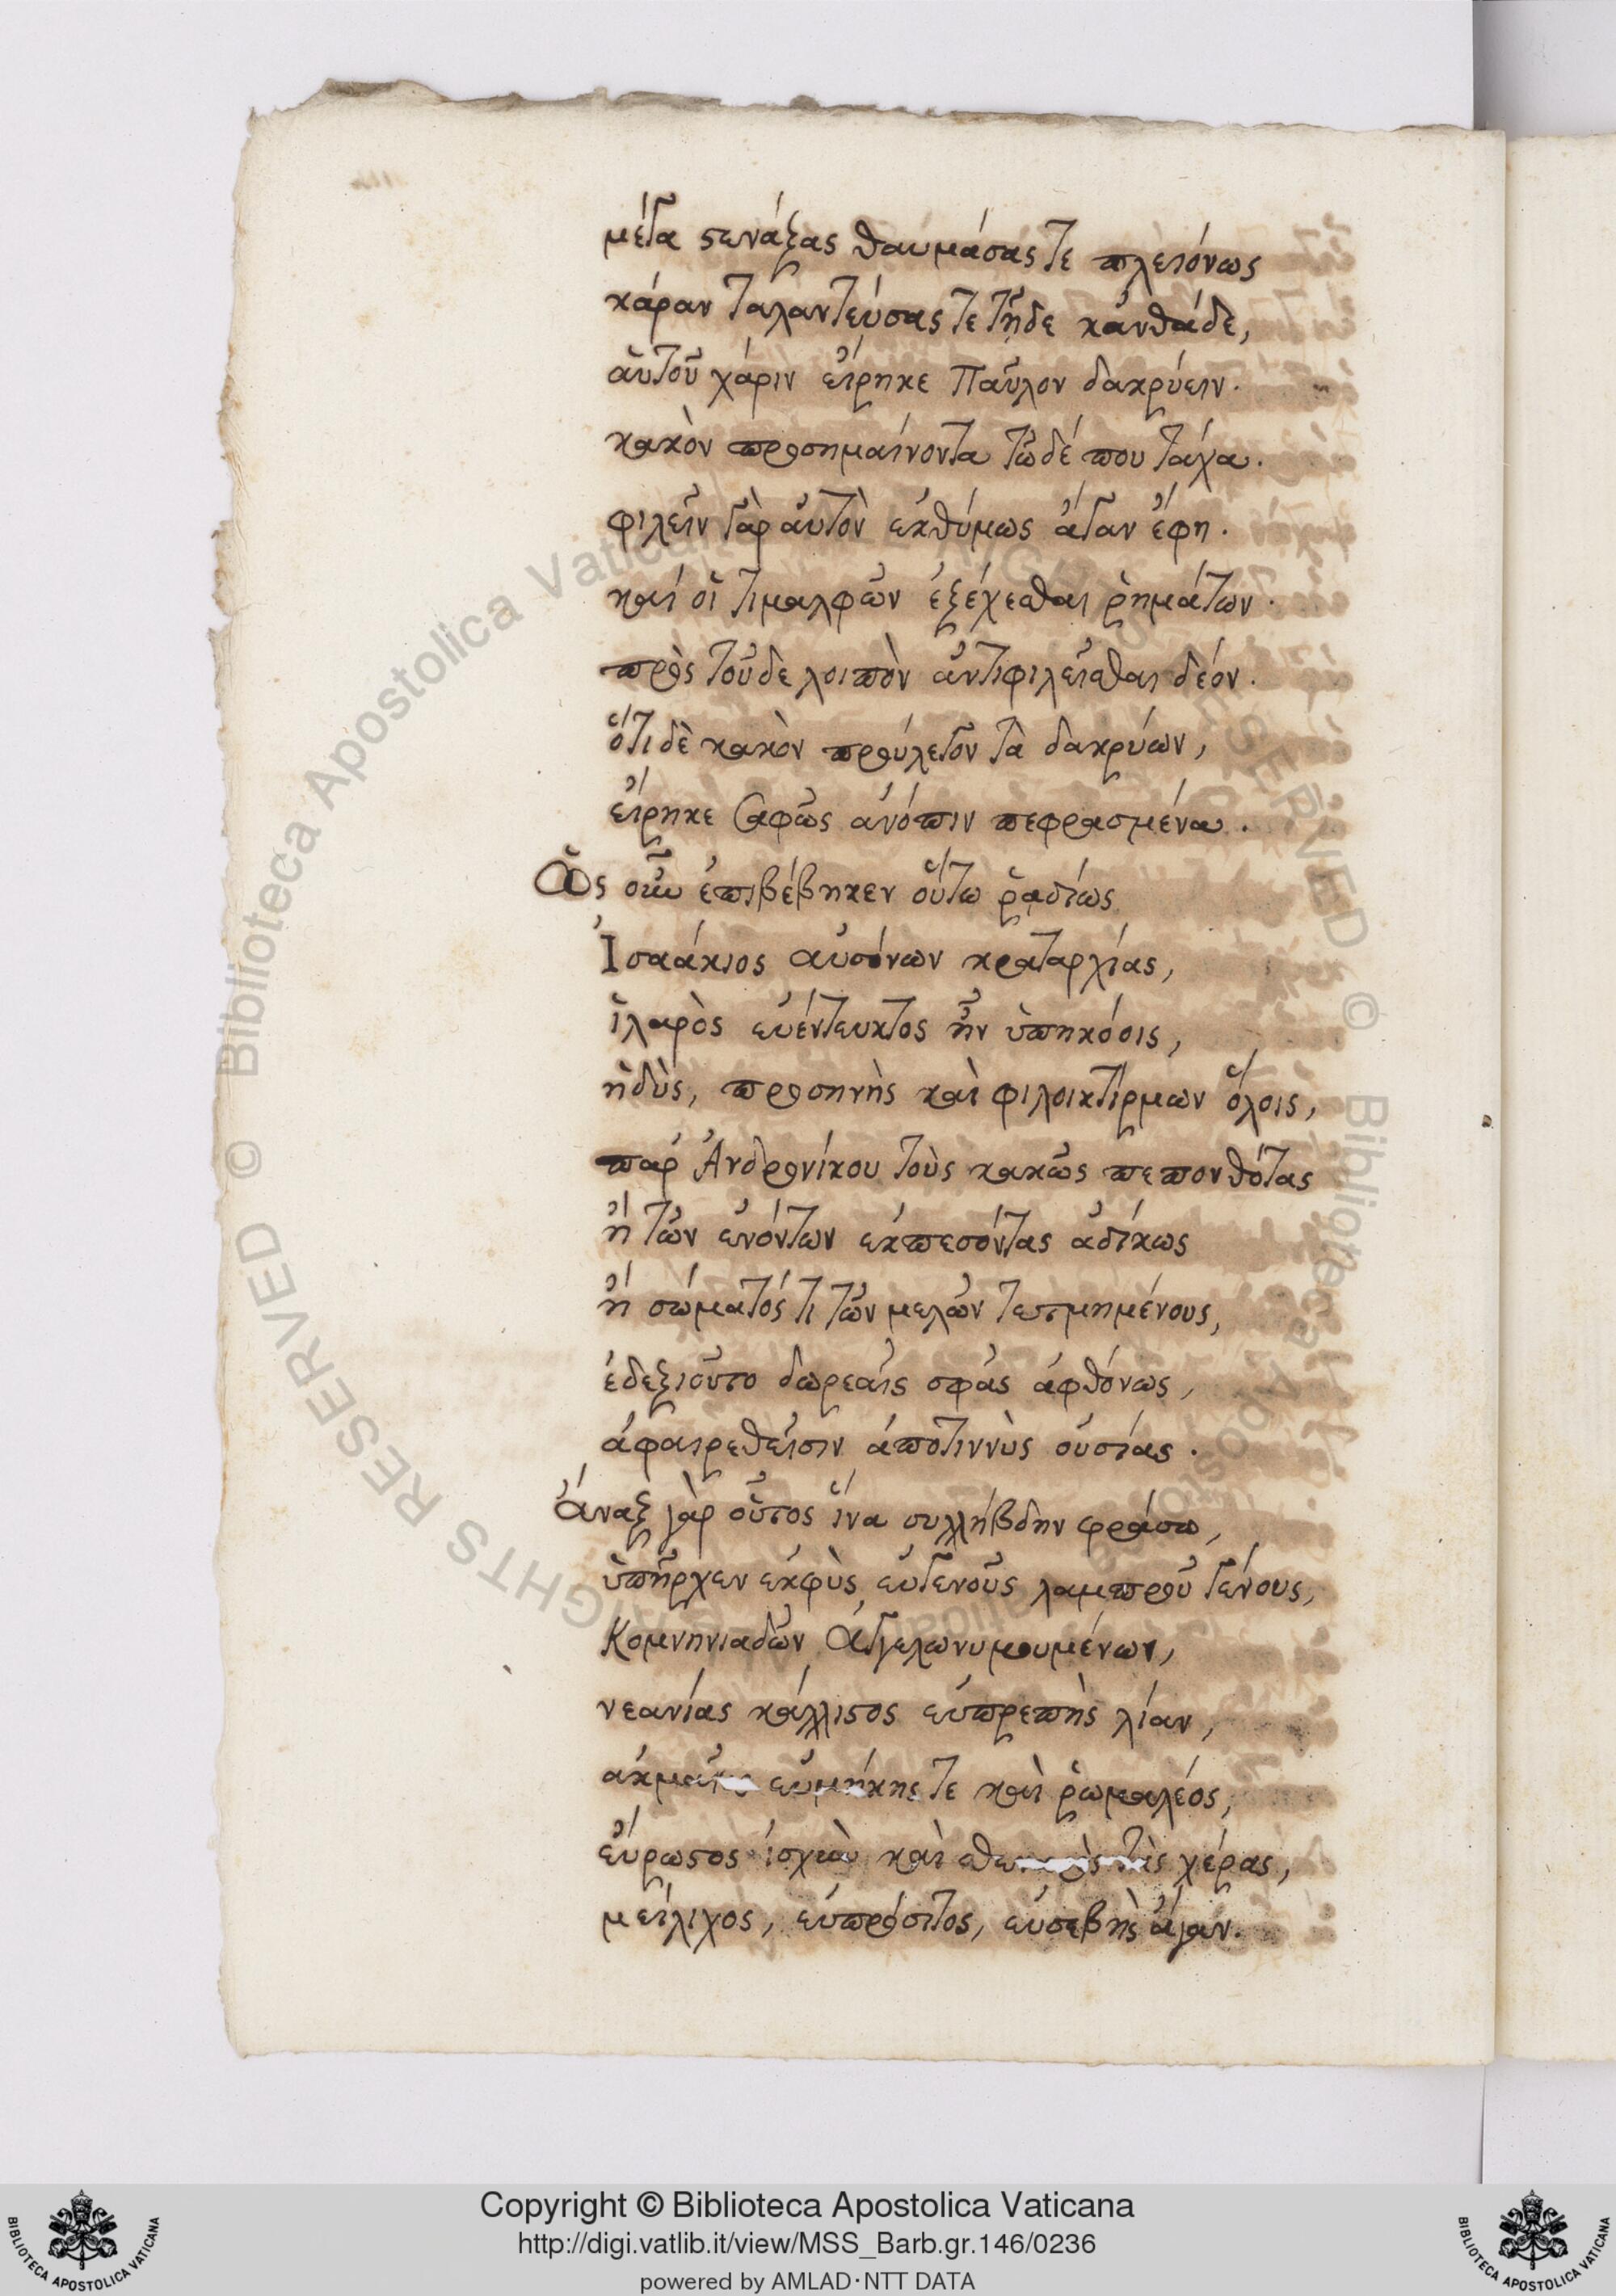 μέγα στενάξας θαυμάσας τε πλειόνως
κάραν ταλαντεύσας τε τῇδε κἀνθάδε,
αὐτοῦ χάριν εἴρηκε Παῦλον δακρύειν.
κακὸν προσημαίνοντα τῷδέ που τάχα.
φιλεῖν γὰρ αὐτὸν ἐκθύμως ἄγαν ἔφη.
καί οἱ τιμαλφῶν ἐξέχεσθαι ῥημάτων.
πρὸς τοῦδε λοιπὸν ἀντιφιλεῖσθαι δέον.
ὅτι δὲ κακὸν προὔλεγον τὰ δακρύων,
εἴρηκε σαφῶς ἀνόπιν πεφρασμένα.
Ὡς οὖν ἐπιβέβηκεν οὕτω ῥᾳδίως
Ἰσαάκιος αὐσόνων κραταρχίας,
ἱλαρὸς εὐέντευκτος ἦν ὑπηκόοις,
ἡδὺς, προσηνὴς καὶ φιλοικτίρμων ὅλοις,
παρ Ἀνδρονίκου τοὺς κακῶς πεπονθότας
ἢ τῶν ἐνόντων ἐκπεσόντας ἀδίκως
ἢ σώματός τι τῶν μελῶν τετμημένους,
ἐδεξιοῦτο δωρεαῖς σφᾶς ἀφθόνως,
ἀφαιρεθεῖσιν ἀποτιννὺς οὐσίας.
Ἄναξ γὰρ οὗτος ἵνα συλλήβδην φράσω,
ὑπῆρχεν ἐκφὺς εὐγενοῦς λαμπροῦ γένους,
Κομνηνιαδῶν Ἀγγελωνυμουμένων,
νεανίας κάλλιστος εὐπρεπὴς λίαν,
εὐμήκης τε καὶ ῥωμαλέος,
εὔρωστος ἰσχὺν καὶ τὰς χέρας,
μείλιχος, εὐπρόσιτος, εὐσεβὴς ἄγαν.
Copyright © Biblioteca Apostolica Vaticana
http://digi.vatlib.it/view/MSS_Barb.gr.146/0236
powered by AMLAD·NTT DATA
BIBLIOTECA APOSTOLICA VATICANA
BIBLIOTECA APOSTOLICA VATICANA